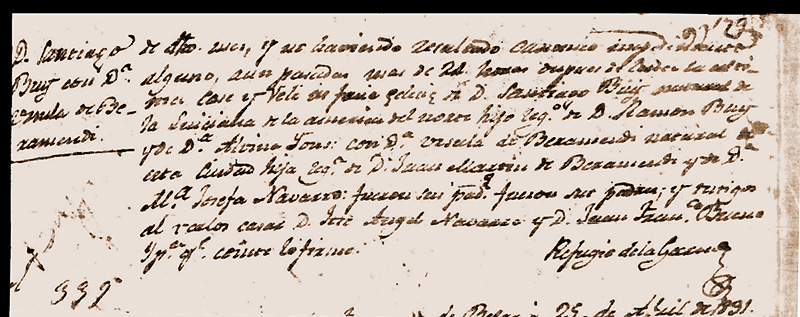 D. Santiago
Buy con Dª
Ursula de Be-
ramendi.
de dho. mes, y no haviendo resultado canonico impedimento
alguno, aun pasadas mas de 24 horas despues de
case y Velé in facie ecleciæ á D. Santiago Buy natural de
la Luiciana de la america del norte hijo legº. de D. Ramon Buy
y de Dª con Dª. Ursula de Beramendi natural de
esta Ciudad hija legª. de D. Juan Martin de Beramendi y de Dª
Mª Josefa Navarro: fueron sus pad. fueron sus padrs; y testigos
al verlos casar D. José Angel Navarro y D. Juan Franco. Bueno
y pª. qe. conste lo firmé.
Refugio de la Garza
332
de Bejar á 25 de Abril de 1831.